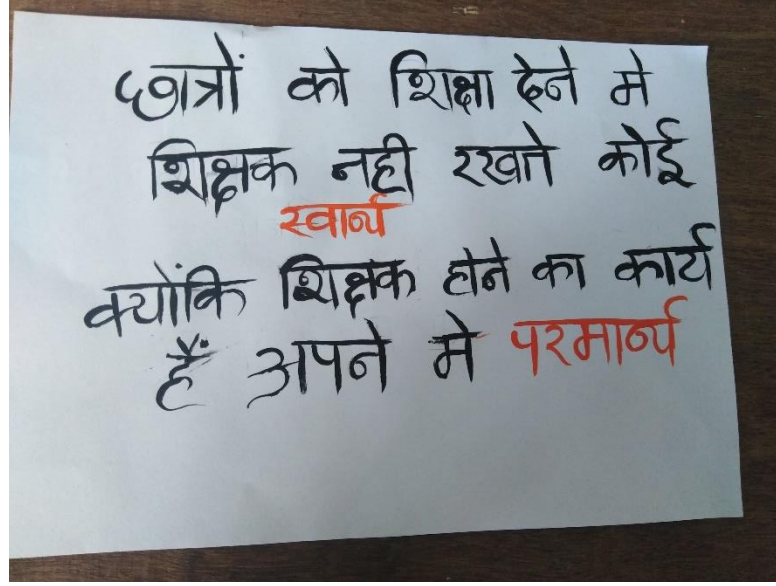 छात्रों को शिक्षा देने मे
शिक्षक नही रखते कोई
स्वार्थ
क्योंकि शिक्षक होने का कार्य
हैं अपने मे परमार्थ